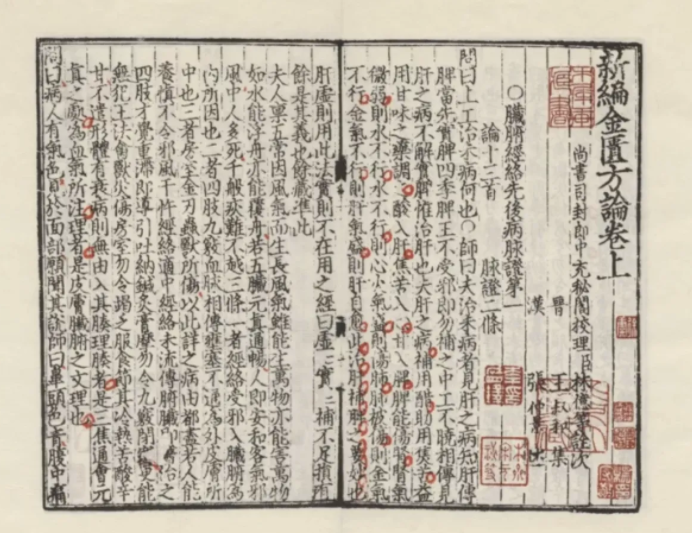 新編金匱方論卷上
尚書司封郎中充秘閣校理臣林億等詮次
晉 王叔和 集
漢 張仲景 述
○臟腑經絡先後病脉證第一
論十三首 脉證二條
問曰上工治未病何也○師曰夫治未病者見肝之病知肝傳
脾當先實脾四季脾王不受邪即勿補之中工不曉相傳見
肝之病不解實脾惟治肝也夫肝之病補用酸助用焦苦益
用甘味之藥調之酸入肝焦苦入心甘入脾脾能傷腎腎氣
微弱則水不行水不行則心火氣盛則傷肺肺被傷則金氣
不行金氣不行則肝氣盛則肝自愈此治肝補脾之要妙也
肝虛則用此法實則不在用之經曰虛〻實〻補不足損有
餘是其義也餘藏準此
夫人稟五常因風氣而生長風氣雖能生萬物亦能害萬物
如水能浮舟亦能覆舟若五臟元真通暢人即安和客氣邪
風中人多死千般疢難不越三條一者經絡受邪入臟腑為
內所因也二者四肢九竅血脉相傳壅塞不通為外皮膚所
中也三者房室金刃蟲獸所傷以此詳之病由都盡若人能
養慎不令邪風干忤經絡適中經絡未流傳腑臟即醫治之
四肢才覺重滯即導引吐納鍼灸膏摩勿令九竅閉塞更能
無犯王法禽獸災傷房室勿令竭之服食節其冷熱苦酸辛
甘不遺形體有衰病則無由入其腠理腠者是三焦通會元
真之處為血氣所注理者是皮膚臟腑之文理也
問曰病人有氣色見於面部願聞其說師曰鼻頭色青腹中痛